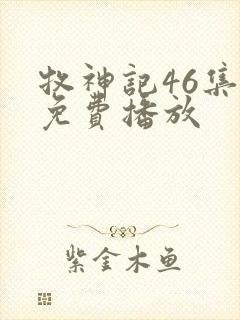 牧神記46集
免費播放
紫金木鱼